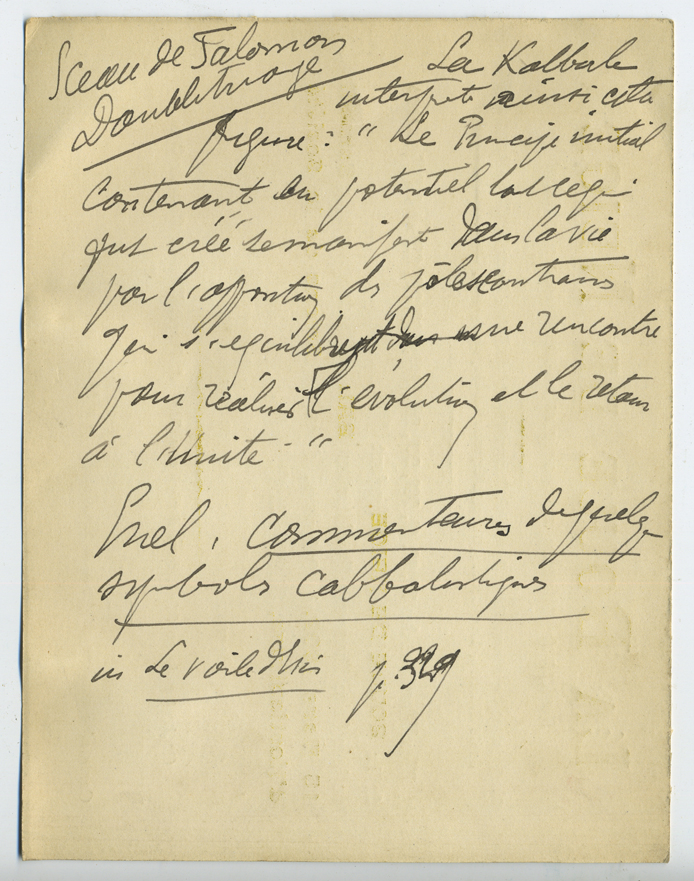 Sceau de Salomon
Double triangle
La Kabbale
interprète ainsi cette
figure : " Le Principe initial
contenant en potentiel tout ce qui
fut créé se manifeste dans la vie
par l'opposition des pôles contraires
qui s'équilibrent rencontre
pour réaliser l'évolution et le retour
à l'Unité "
Enel, Commentaires de quelques
symboles cabbalistiques
in Le Voile d'Isis p. 329